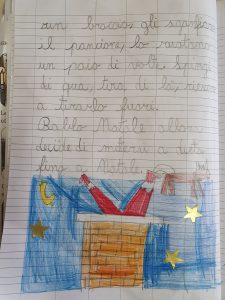 un braccio, gli sgonfiano
il pancione, lo ruotano
un paio di volte. Spingi
di qua, tira di là, riescono
a tirarlo fuori.
Babbo Natale allora
decide di mettersi a dieta
fino a Natale